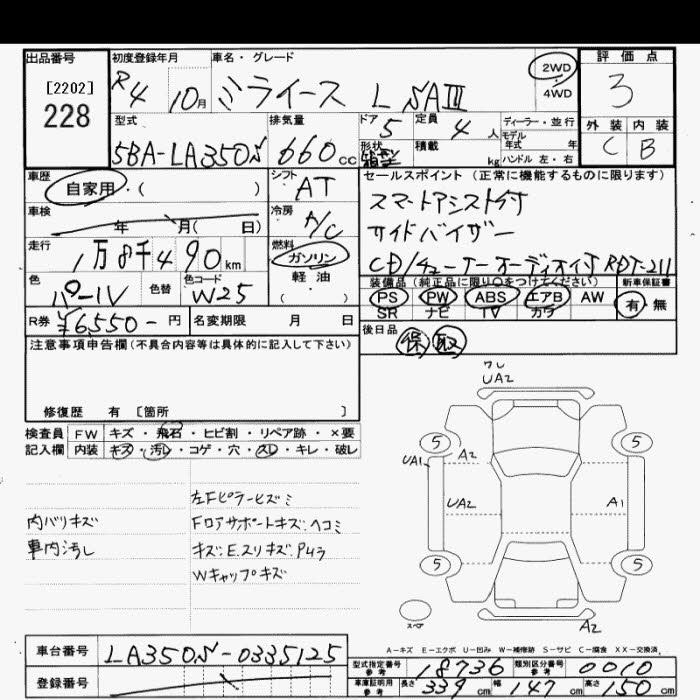 出品番号 初度登録年月 車名・グレード 評価点
[2202] R4 10月 ミライース L SAⅢ 2WD 3
228 4WD
型式 排気量 ドア 定員 ディーラー・並行 外装 内装
5BA-LA350S 660cc 5 4人 モデル年式 年 C B
形状 箱型 積載 kg ハンドル 左・右
車歴 シフト セールスポイント (正常に機能するものに限ります)
自家用・( ) AT スマートアシスト付
車検 年 月( 日) 冷房 A/C サイドバイザー
走行 1万8千490km 燃料 ガソリン CD/チューナーオーディオイJ RDT-211
軽油
( )
色 パールV 色替 色コード W25 装備品 (純正品に限り○をつけてください) 新車保証書
PS PW ABS エアB AW 有・無
SR ナビ TV カワ
R券 ¥6550-円 名変期限 月 日 後日品 保 取
注意事項申告欄(不具合内容等は具体的に記入して下さい)
修復歴 有 [箇所 ]
検査員 FW キズ・飛石・ヒビ割・リペア跡・×要
記入欄 内装 キズ・汚レ・コゲ・穴・スレ・キレ・破レ
ワレ
UA2
5 5
UA1 A2
UA2 A1
5 5
スペア
A2
左Fピラーヒズミ
内バリキズ Fロアサポートキズ・ヘコミ
車内汚レ キズ・E.スリキズ.P4ラ
Wキャップキズ
A-キズ E-エクボ U-凹み W-補修跡 S-サビ C-腐食 XX-交換済
車台番号 LA350S-0335125
登録番号
型式指定番号 参考 18736 類別区分番号 参考 0010
車庫証明用 参考 長さ 339cm 幅 147cm 高さ 150cm